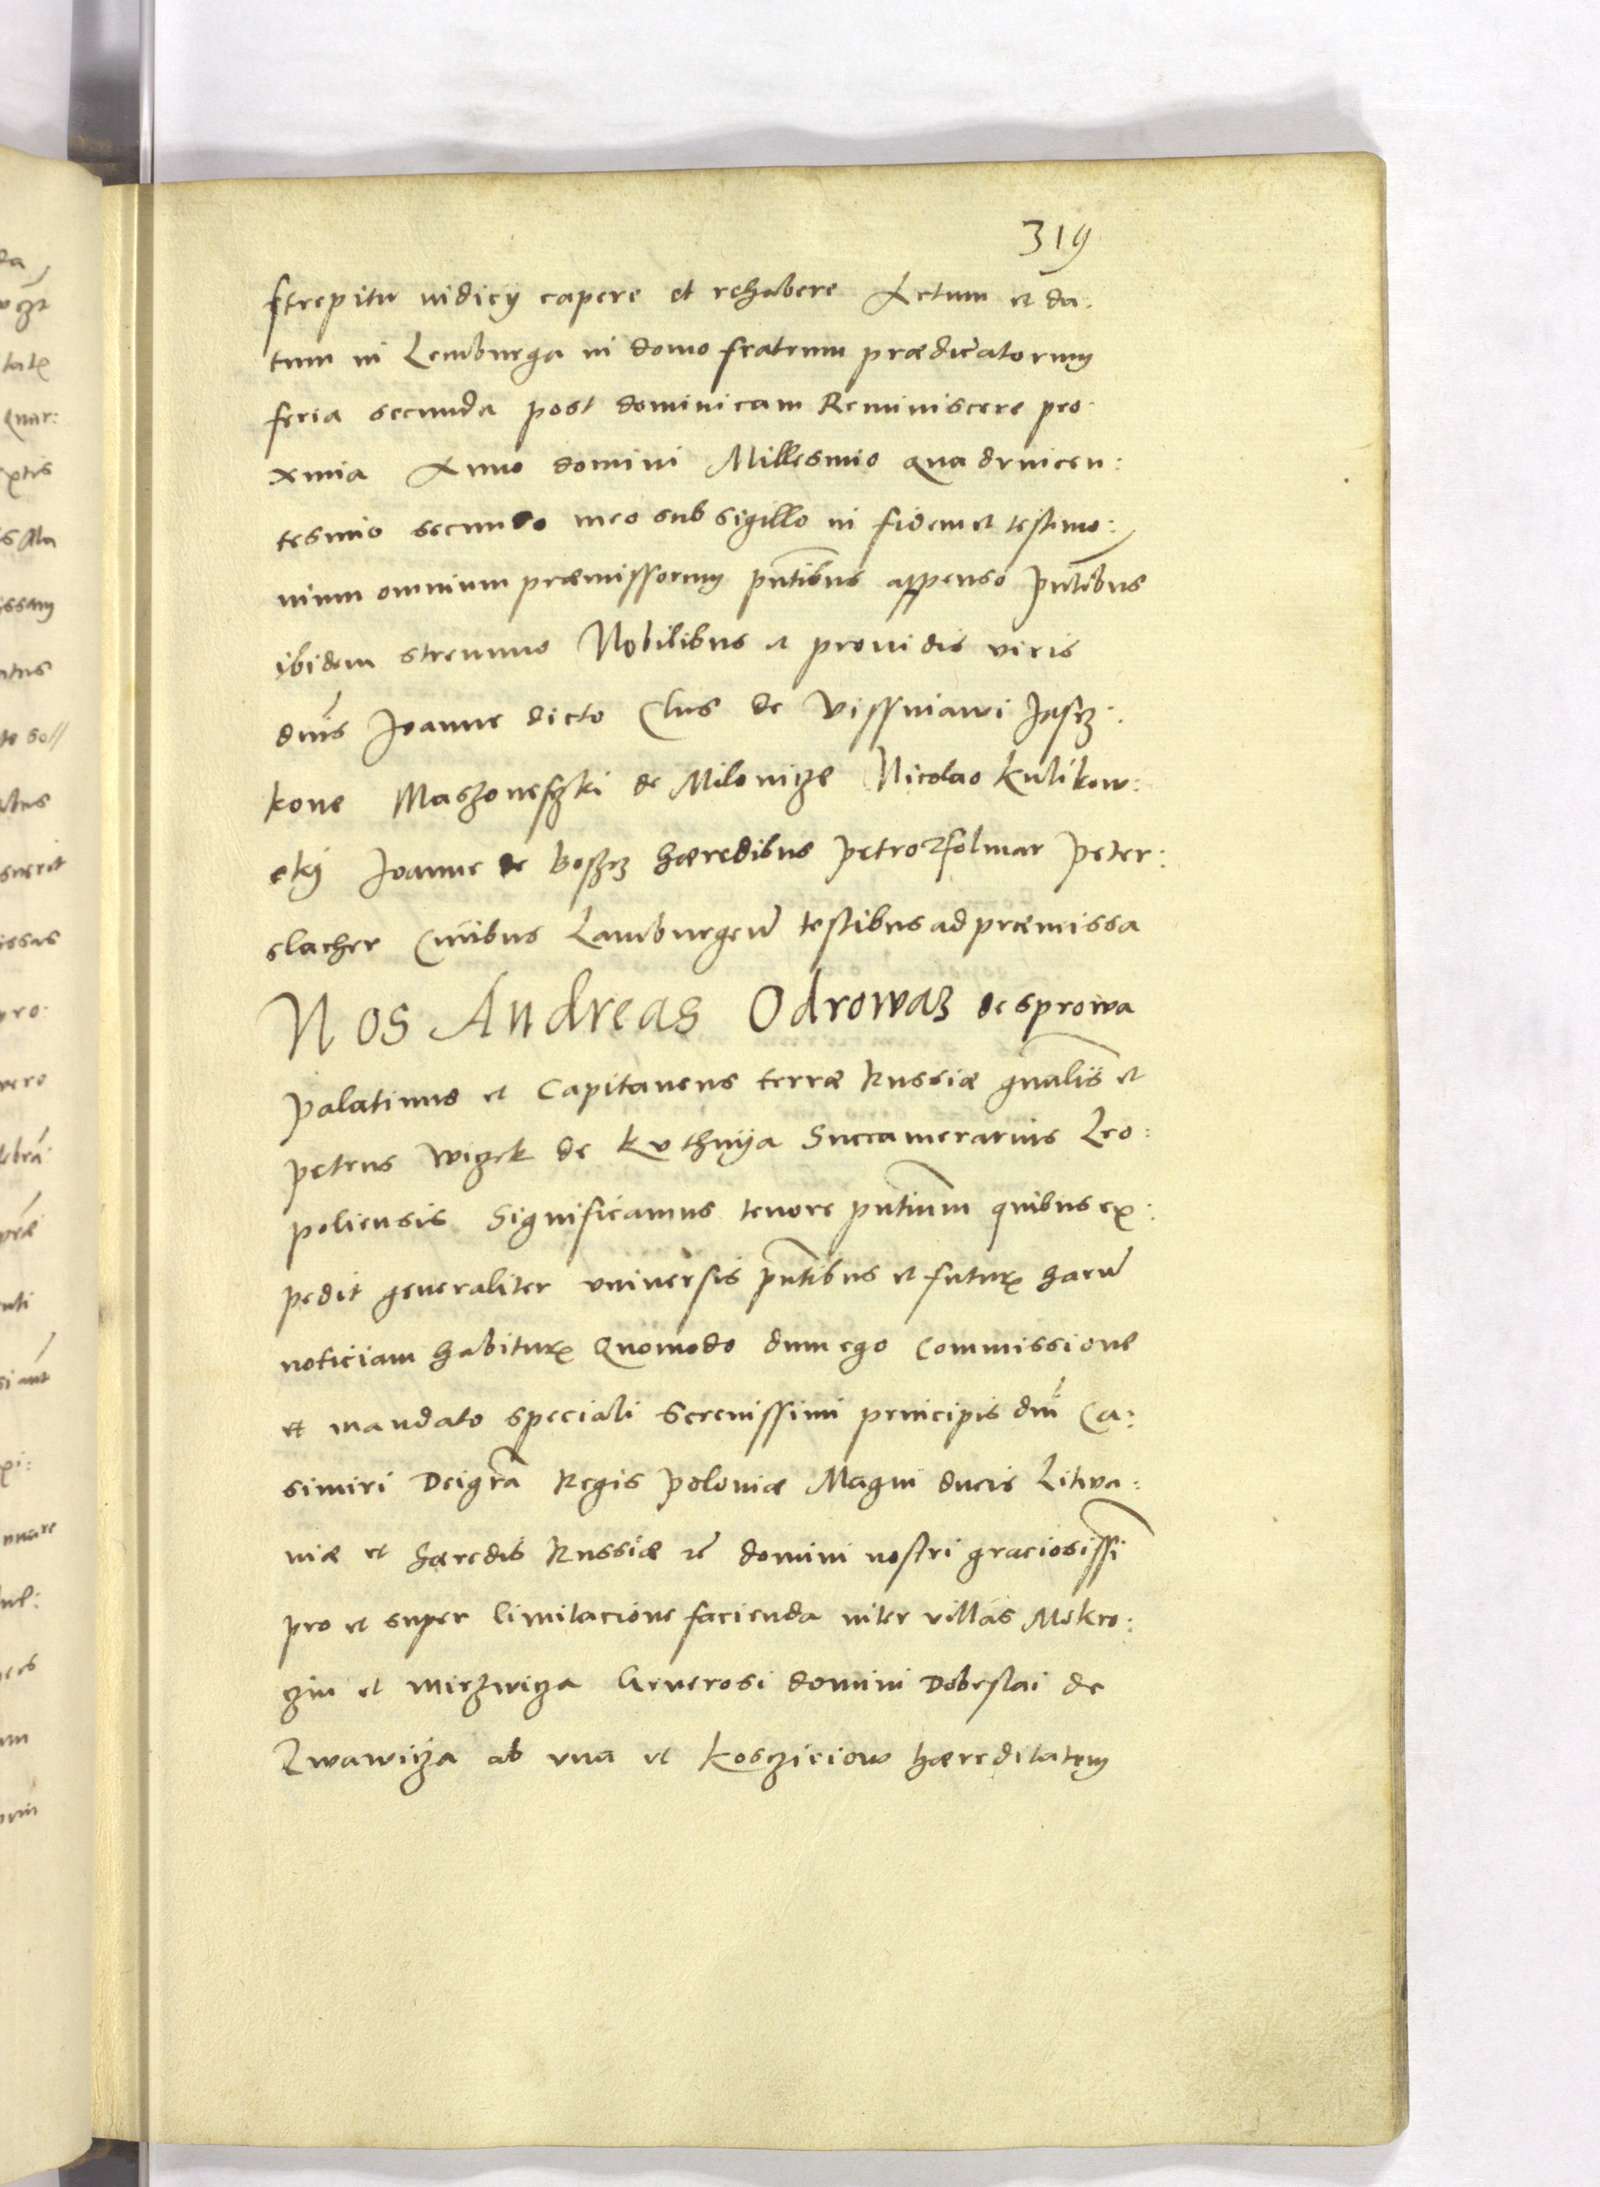 319
strepitu iudicÿ capere et rehabere Actum et da:
tum in Lemburga in domo fratrum prædicatorum
feria secunda post dominicam Reminiscere pro:
xima Anno domini Millesimo quadringen:
tesimo secundo meo sub sigillo in fidem et testimo:
nium omnium præmissorum pñtibus appenso Pñtibus
ibidem strennuo Nobilibus et prouidis viris
dñis Joanne dicto Clus de Vissniawi Jasz:
kone Maszoneszki de Miloniçze Nicolao Kulikow:
skÿ Joanne de Boszcz hæredibus Petro Zsolmar Peter:
slacher Ciuibus Lamburgeñ testibus ad præmissa
Nos Andreas Odrowaz de sprowa
Palatinus et Capitaneus terræ Russiæ gñalis et
Petrus Wiczek de Kuthnÿa Succamerarius Leo:
poliensis Significamus tenore pñtium quibus ex:
pedit generaliter vniuersis pñtibus et futuꝝ harũ
noticiam habituꝝ Quomodo dum ego Commissione
et mandato speciali Serenissimi principis dñi Ca:
simiri Dei gr̃a Regis Poloniæ Magni ducis Litwa:
niæ et hæredis Russiæ zc̃ domini nostri graciosissi
pro et super limitacione facienda inter villas Mokro:
zin et Mierzwicza Generosi domini Dobeslai de
Zwawicza ab vna et Kosczieiow hæreditatem